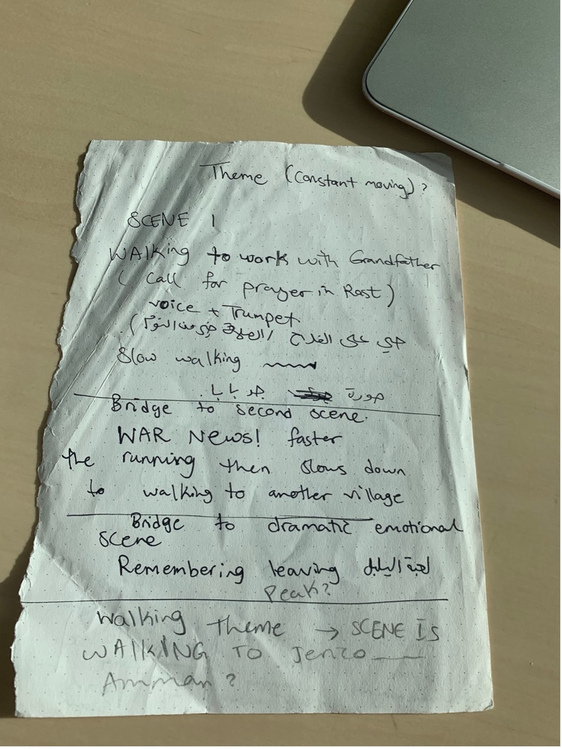 Theme (Constant moving)?
SCENE 1
WALKing to work with Grandfather
( call for prayer in Rast)
voice + Trumpet
(حي على الفلاح / الصلاة خير من النوم)
Slow walking
صورة جد بابا.
Bridge to second scene.
WAR News! faster
the running then slows down
to walking to another village
Bridge to dramatic emotional
scene
Remembering leaving
Peak?
Walking theme → SCENE IS
WALKING TO
Amman?